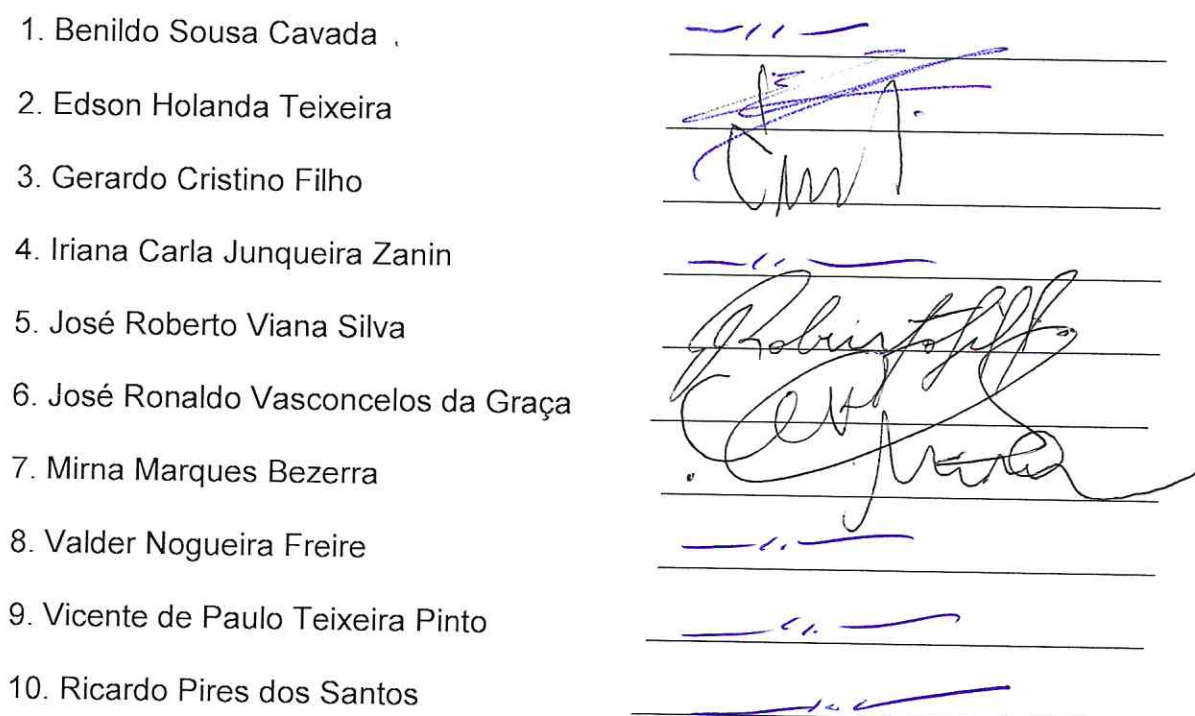 1. Benildo Sousa Cavada
2. Edson Holanda Teixeira
3. Gerardo Cristino Filho
4. Iriana Carla Junqueira Zanin
5. José Roberto Viana Silva
6. José Ronaldo Vasconcelos da Graça
7. Mirna Marques Bezerra
8. Valder Nogueira Freire
9. Vicente de Paulo Teixeira Pinto
10. Ricardo Pires dos Santos